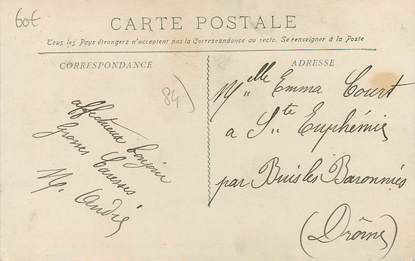 60€
CARTE POSTALE
Tous les Pays étrangers n'acceptent pas la Correspondance au recto. Se renseigner à la Poste
CORRESPONDANCE
affectueux bonjour
Grosses Caresses
M. André
84)
ADRESSE
Melle Emma Court
a Ste Euphémie
par Buis les Baronnies
(Drôme)